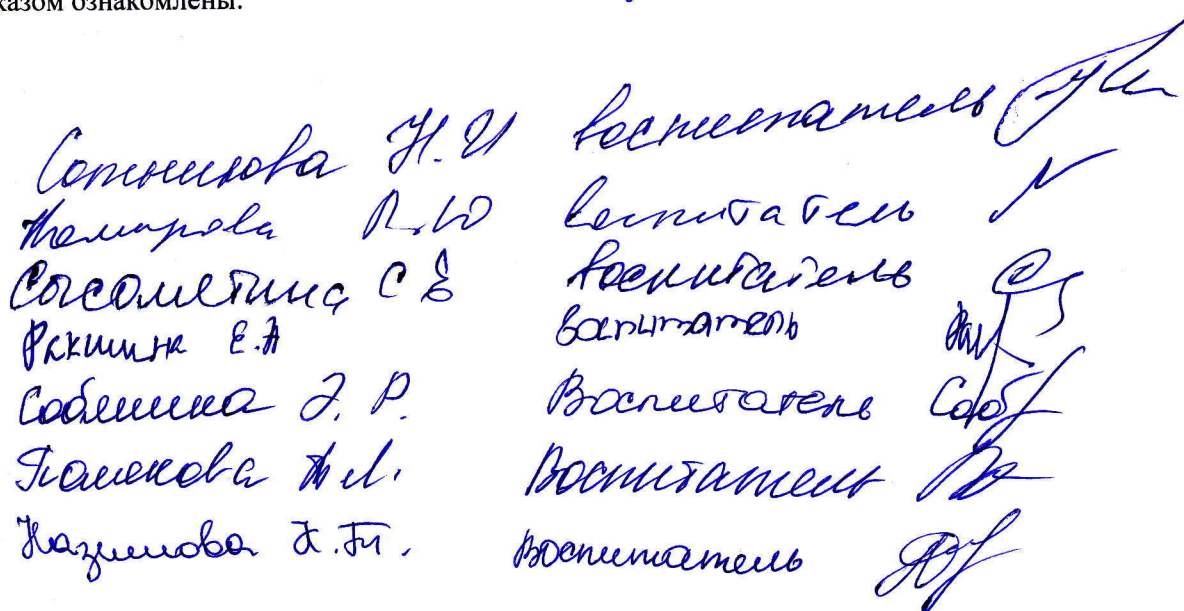 казом ознакомлены.
Сотникова Н.И воспитатель
воспитатель
Сысолетина С Е воспитатель
Ракшина Е.А воспитатель
Соблинина Э. Р. Воспитатель Соб
Воспитатель
Назимова Воспитатель